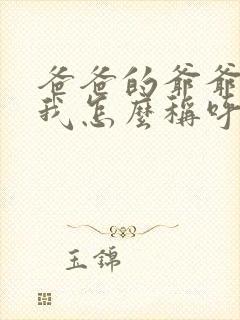 爸爸的爷爷
我怎麼稱呼
玉錦